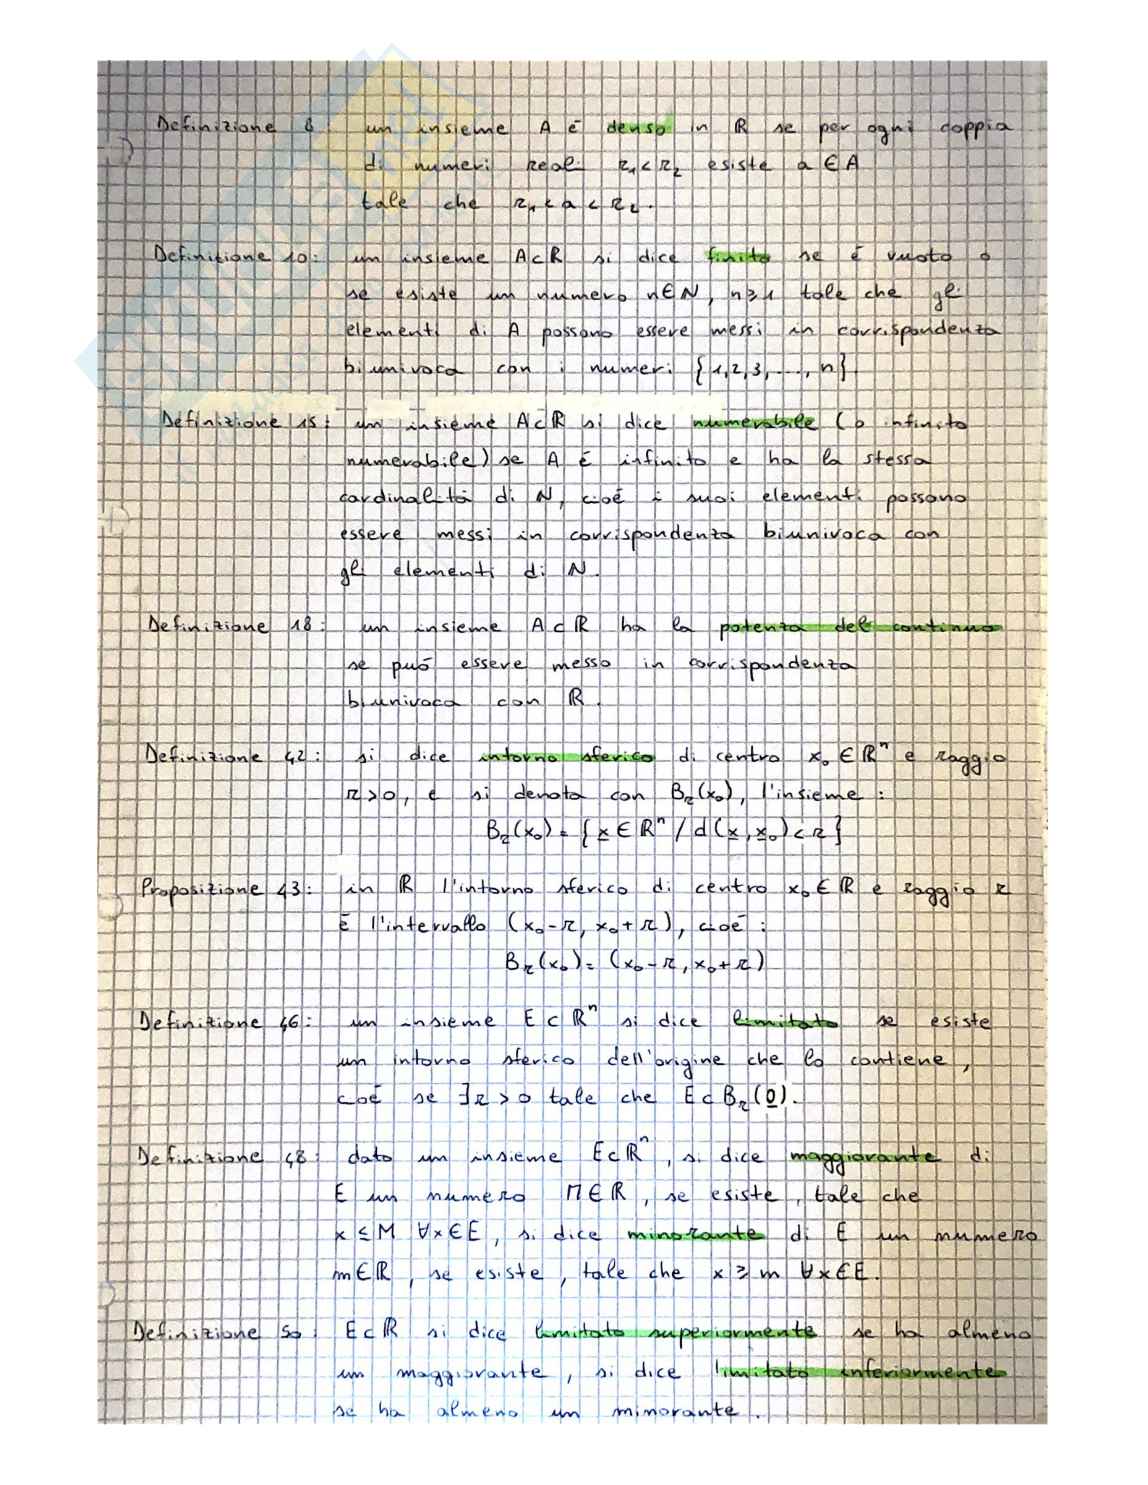 Definizione 8: un insieme A è denso in ℝ se per ogni coppia
di numeri reali r₁<r₂ esiste a ∈ A
tale che r₁<a<r₂.
Definizione 10: un insieme A⊂ℝ si dice finito se è vuoto o
se esiste un numero n∈N, n≥1 tale che gli
elementi di A possono essere messi in corrispondenza
biunivoca con i numeri {1,2,3,...,n}
Definizione 15: un insieme A⊂ℝ si dice numerabile (o infinito
numerabile) se A è infinito e ha la stessa
cardinalità di N, cioè i suoi elementi possono
essere messi in corrispondenza biunivoca con
gli elementi di N.
Definizione 18: un insieme A⊂ℝ ha la potenza del continuo
se può essere messo in corrispondenza
biunivoca con ℝ.
Definizione 42: si dice intorno sferico di centro x₀ ∈ ℝⁿ e raggio
r>0, e si denota con Bᵣ(x₀), l'insieme:
Bᵣ(x₀) = {x̲ ∈ ℝⁿ / d(x̲, x̲₀) < r}
Proposizione 43: in ℝ l'intorno sferico di centro x₀∈ℝ e raggio r
è l'intervallo (x₀-r, x₀+r), cioè:
Bᵣ(x₀) = (x₀-r, x₀+r)
Definizione 46: un insieme E⊂ℝⁿ si dice limitato se esiste
un intorno sferico dell'origine che lo contiene,
cioè se ∃r>0 tale che E⊂Bᵣ(0̲).
Definizione 48: dato un insieme E⊂ℝⁿ, si dice maggiorante di
E un numero M∈ℝ, se esiste, tale che
x≤M ∀x∈E, si dice minorante di E un numero
m∈ℝ, se esiste, tale che x≥m ∀x∈E.
Definizione 50: E⊂ℝ si dice limitato superiormente se ha almeno
un maggiorante, si dice limitato inferiormente
se ha almeno un minorante.